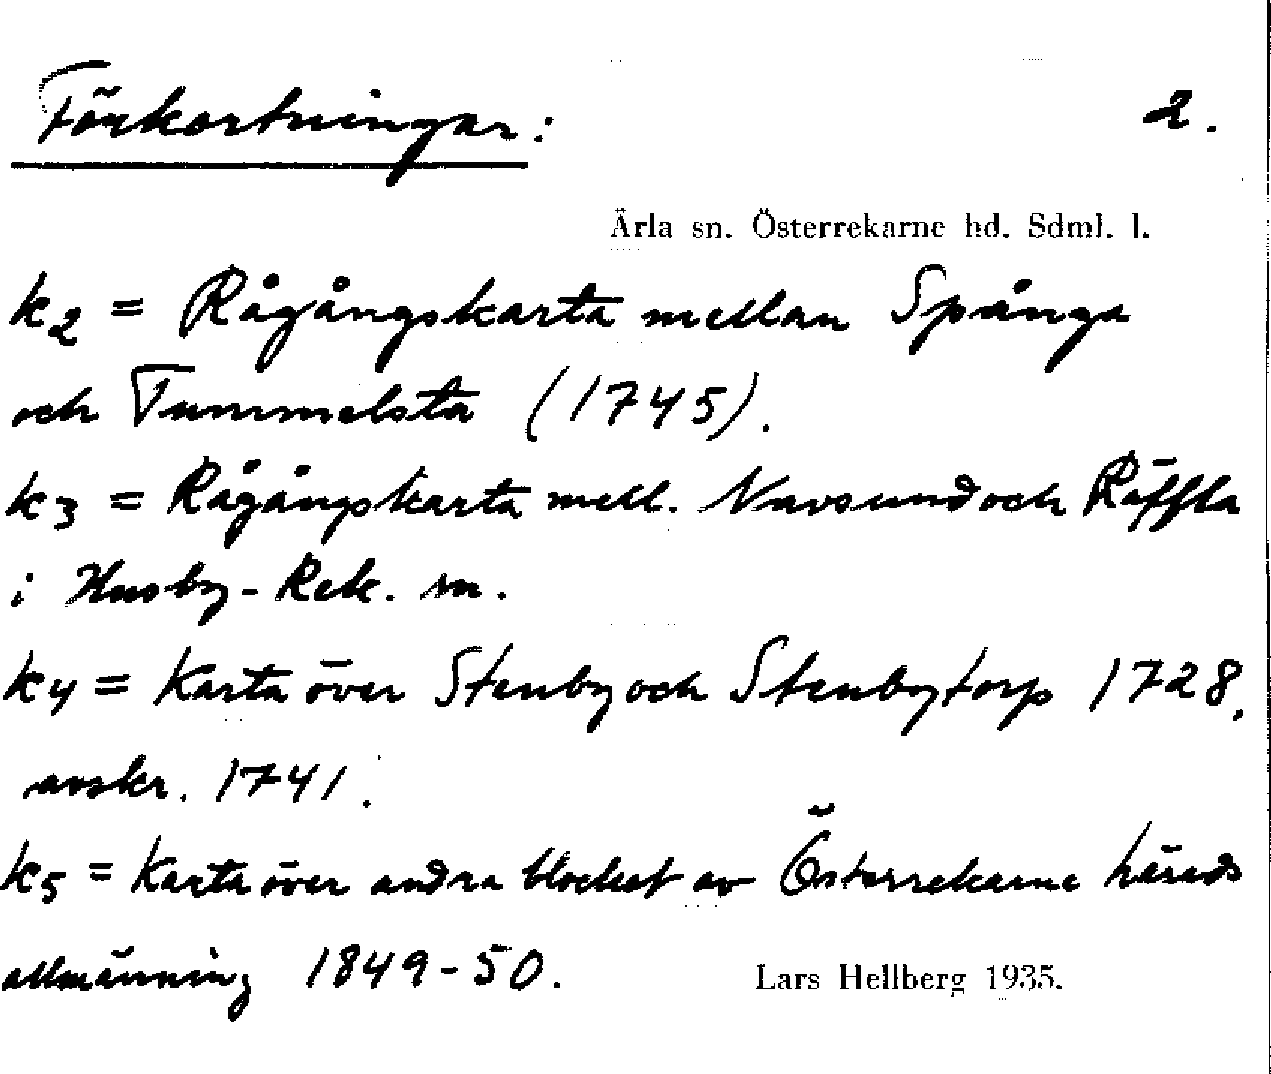 Förkortningar: 2.
Ärla sn. Österrekarne hd. Sdml. l.
k2 = Rågångskarta mellan Spånga
och Tummelsta (1745).
k3 = Rågångskarta mell. Navsund och Räffla
i Husby-Rek. sn.
k4 = Karta över Stenby och Stenbytorp 1728,
avskr. 1741.
k5 = Karta över andra blocket av Österrekarne härads
allmänning 1849-50.
Lars Hellberg 1935.